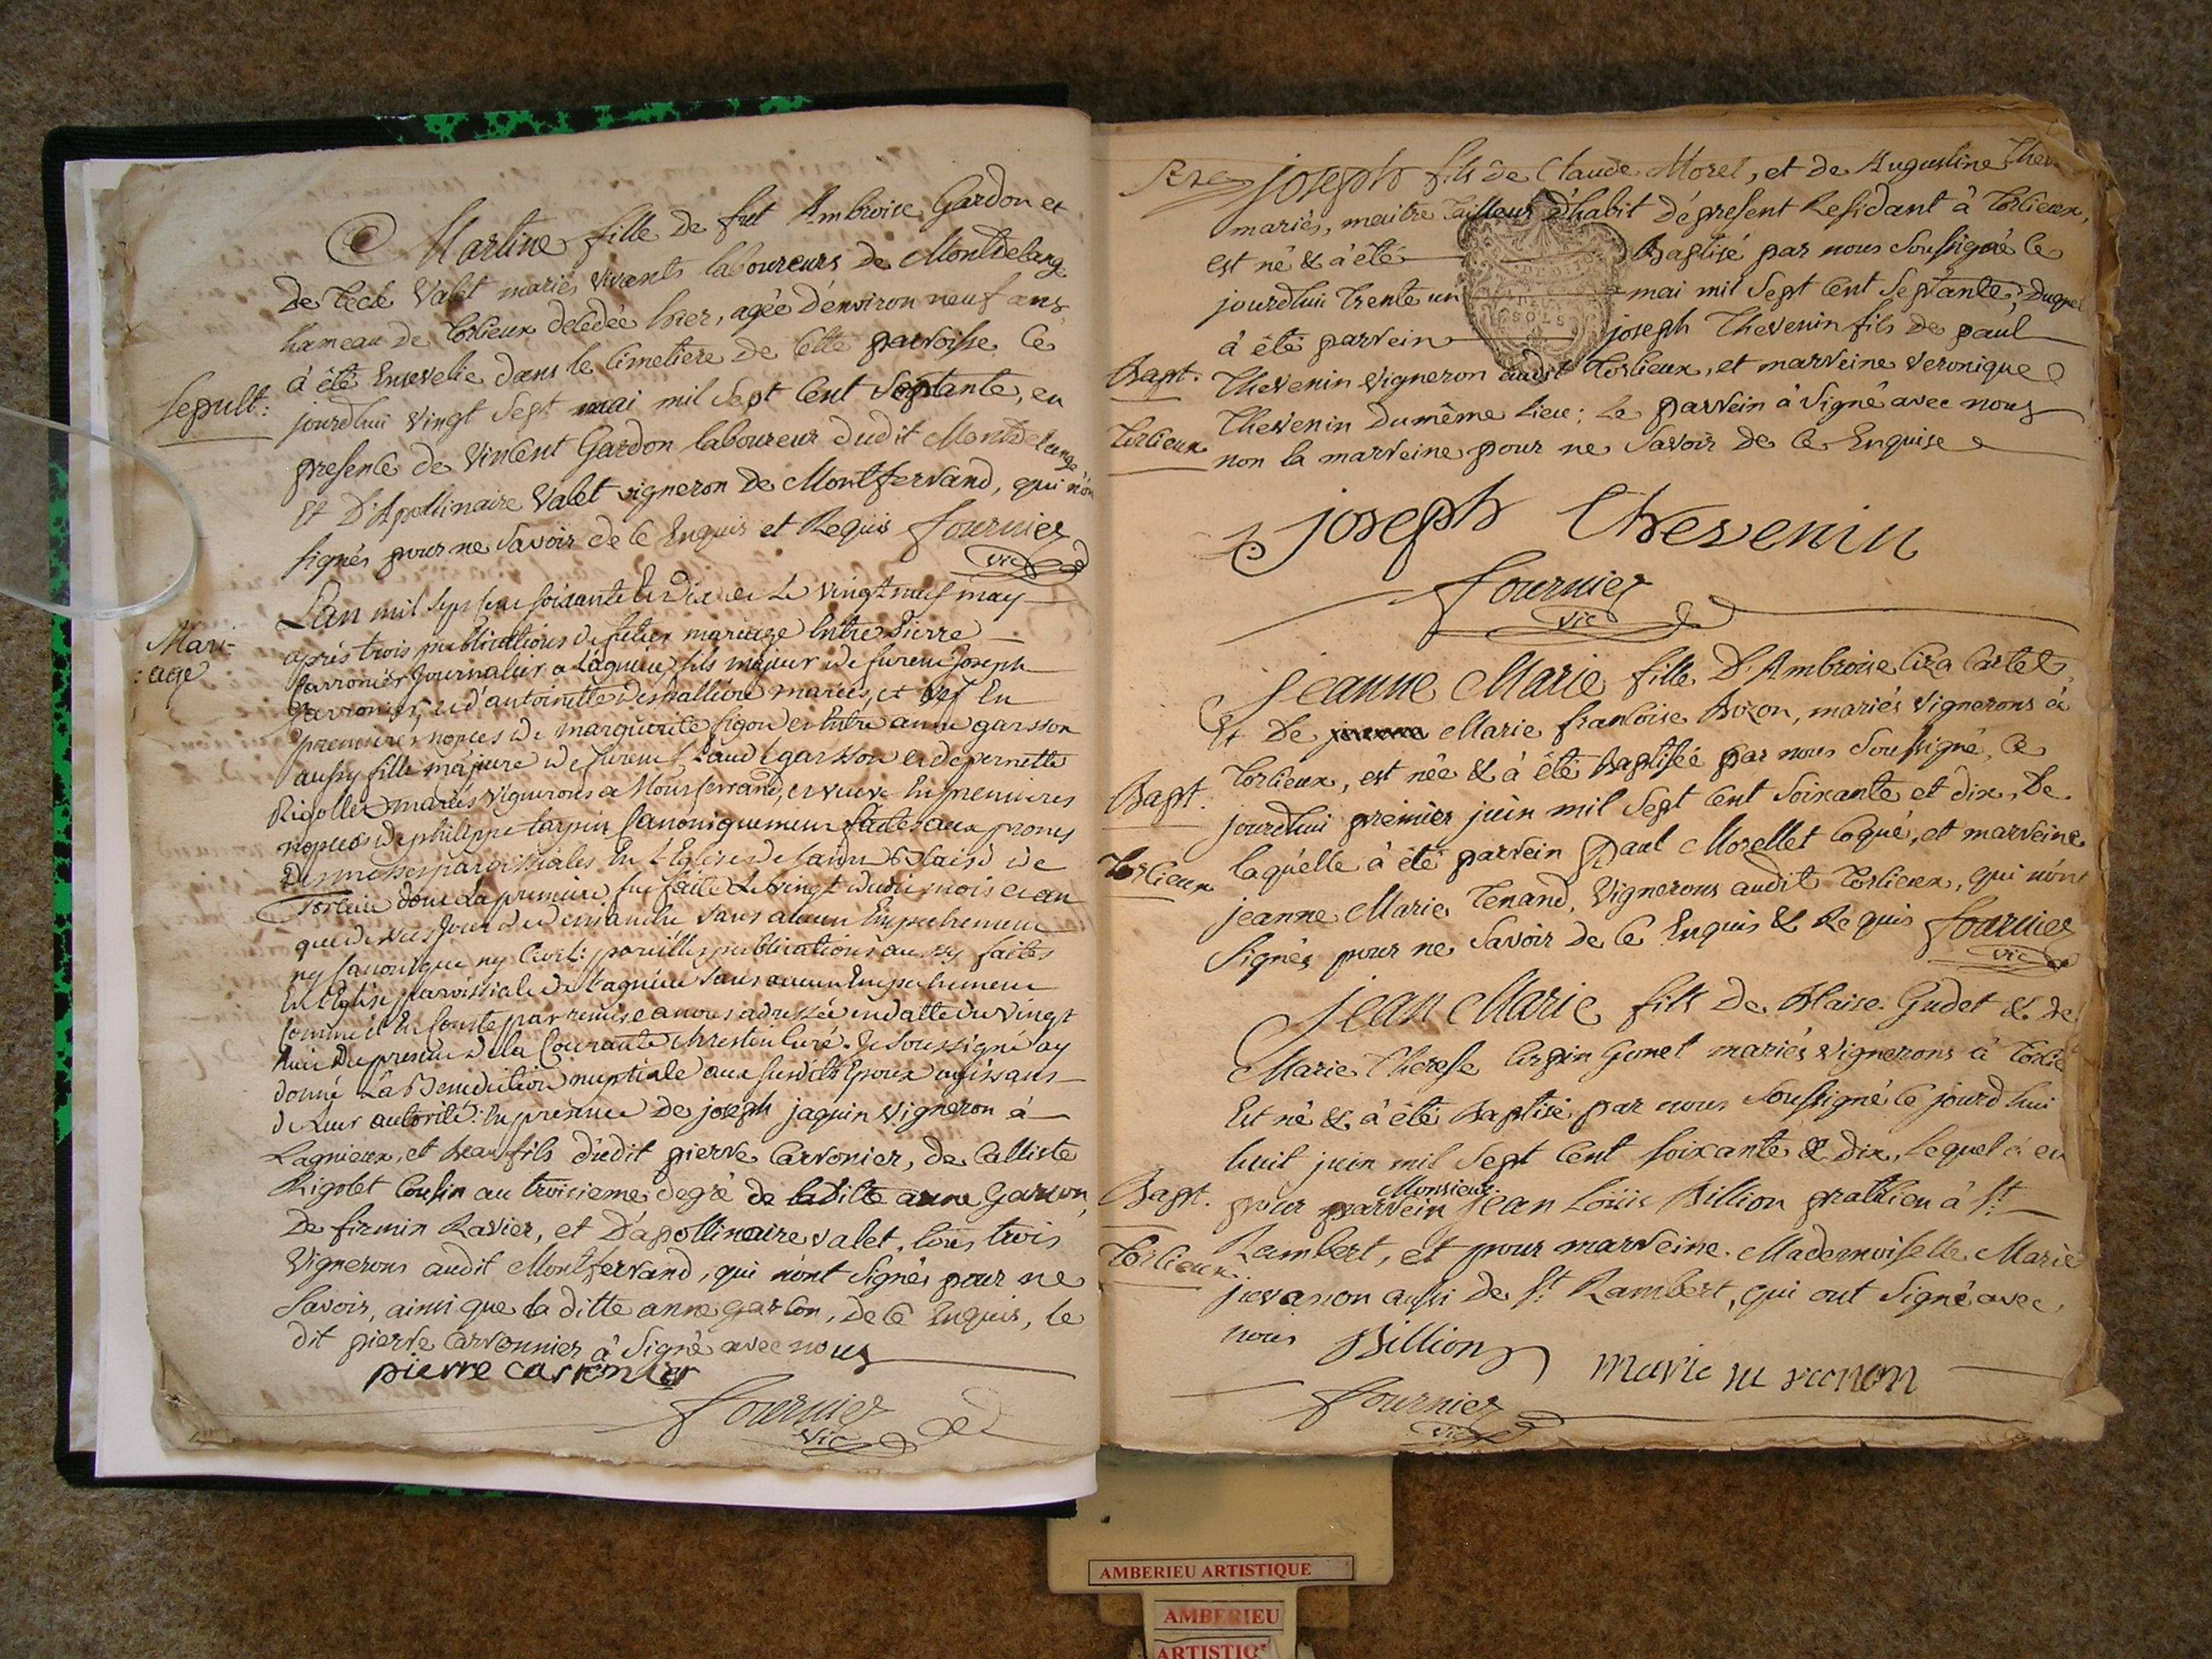 Martine fille de fut Ambroise Gardon et
de Tecle Valet mariés vivants laboureurs de Montdelange
hameau de Torlieux decedée hier, agée d'environ neuf ans
à été Ensevelie dans le Cimetiere de Cette paroisse Ce
Sepult:
jourdhui vingt Sept mai mil Sept Cent Septante, en
presence de Vincent Gardon laboureur dudit Montdelange
Et D'Apollinaire Valet vigneron de Montferrand, qui n'ont
signés pour ne Savoir de Ce Enquis et Requis fournier
vic
Mari-
:age
L'an mil sept cent soixante et Dix et Le vingt neuf may
après trois publications de futur mariage Entre Pierre
Carronier Journalier a Lagnieu, fils majeur de
Carronier, et d'antoinette mariés, et vef En
premieres nopces de marguerite et Entre anne garsson
aussy fille majeure de garsson et de pernette
Rigollet mariés vignerons a Montferrand, et veuve En premieres
nopces de philippe Canoniquement faites aux prones
Des messes paroissiales En L'Eglise de
Torlieu dont La premiere fut faite Le vingt dudit mois et an
que dessus Jour de dimanche sans aucun Empechement
ny Canonique ny Civil: pareilles publications aussy faites
En L'Eglise paroissiale de Lagnieu sans aucun Empechement
Comme il En Conste par remise a nous adressée en datte du vingt
huit Du present Curé. Je Soussigné ay
donné La Benediction nuptiale aux susdits Epoux agissans
de Leur autorité: En presence De joseph jaquin Vigneron à
Lagnieux, et beau fils dudit pierre Carronier, de Calliste
Rigolet Cousin au troisieme degré de ladite anne Garcon,
De firmin Ravier, et D'apollinaire valet, tous trois
Vignerons audit Montferrand, qui n'ont Signés pour ne
Savoir, ainsi que la ditte anne garcon, de Ce Enquis, le
dit pierre Carronnier à Signé avec nous
pierre carronier
fournier
vic
joseph fils de Claude Morel, et de Augustine
mariés, maitre Tailleur d'habit dépresent Residant à Torlieux,
est né & à été Baptisé par nous Soussigné Ce
jourdhui Trente un mai mil Sept Cent Septante, Duquel
à été parrein joseph Thevenin fils de paul
Bapt.
Thevenin Vigneron audit Torlieux, et marreine Veronique
Torlieux
Thevenin du même lieu; Le parrein à Signé avec nous
non la marreine pour ne Savoir de Ce Enquise
joseph Thevenin
fournier
vic
Jeanne Marie fille D'Ambroise Cartet
Et De Marie francoise Bozon, mariés Vignerons à
Torlieux, est née & à été Baptisée par nous Soussigné, Ce
Bapt.
jourdhui premier juin mil Sept Cent Soixante et dix, De
Torlieux
laquelle à été parrein Paul Morellet Coqué, et marreine
jeanne Marie Tenand, Vignerons audit Torlieux, qui n'ont
Signés pour ne Savoir de Ce Enquis & Requis fournier
vic
Jean Marie fils de Blaise Gudet & de
Marie Therese mariés Vignerons à
Est né & à été Baptisé par nous Soussigné Ce jourdhui
huit juin mil Sept Cent Soixante & Dix, Lequel à eu
Bapt.
pour parrein Monsieur Jean Louis Billion praticien à St
Torlieux
Rambert, et pour marreine Mademoiselle Marie
juvanon aussi de St Rambert, qui ont Signé avec
nous Billion
marie ju vanon
fournier
vic
AMBERIEU ARTISTIQUE
AMBERIEU
ARTISTIQ